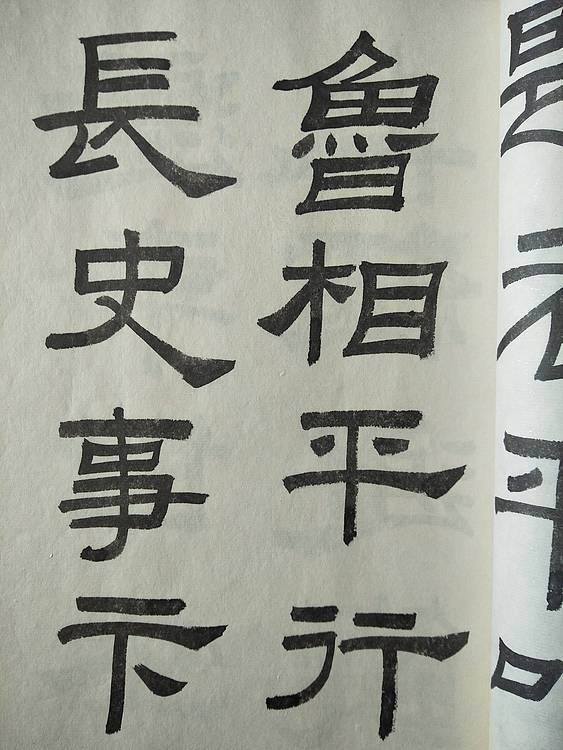 魯相平行
長史事卞